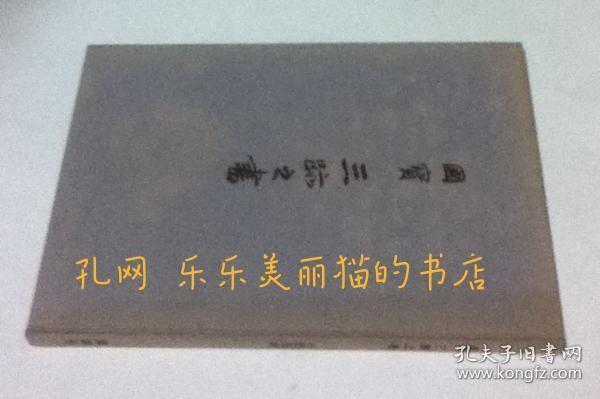 國寳 三筆之書
孔网 乐乐美丽猫的书店
孔夫子旧书网
www.kongfz.com